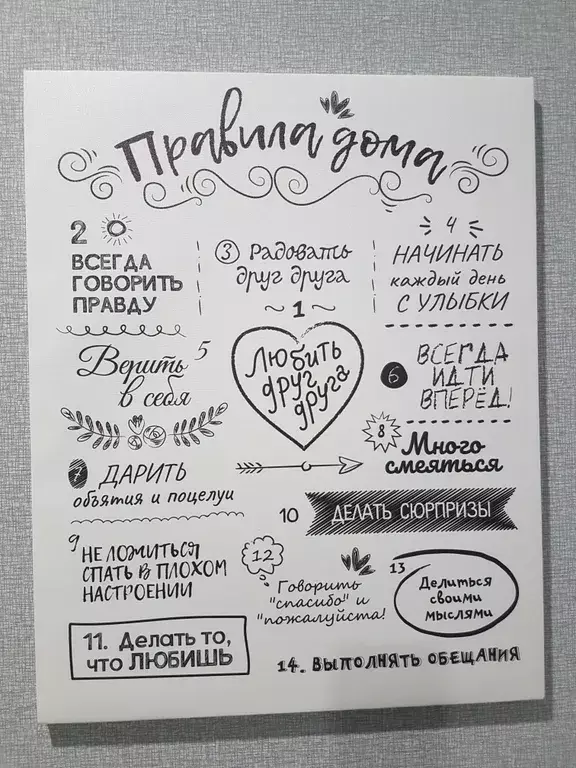 Правила дома
2
ВСЕГДА
ГОВОРИТЬ
ПРАВДУ
3 Радовать
друг друга
4
НАЧИНАТЬ
каждый день
С УЛЫБКИ
~ 1 ~
Любить
друг
друга
Верить 5
в себя
6 ВСЕГДА
ИДТИ
ВПЕРЁД!
7 ДАРИТЬ
объятия и поцелуи
8
Много
смеяться
9
НЕ ЛОЖИТЬСЯ
СПАТЬ В ПЛОХОМ
НАСТРОЕНИИ
10 ДЕЛАТЬ СЮРПРИЗЫ
11. Делать то,
что ЛЮБИШЬ
12
Говорить
"спасибо" и
"пожалуйста!
13
Делиться
своими
мыслями
14. ВЫПОЛНЯТЬ ОБЕЩАНИЯ